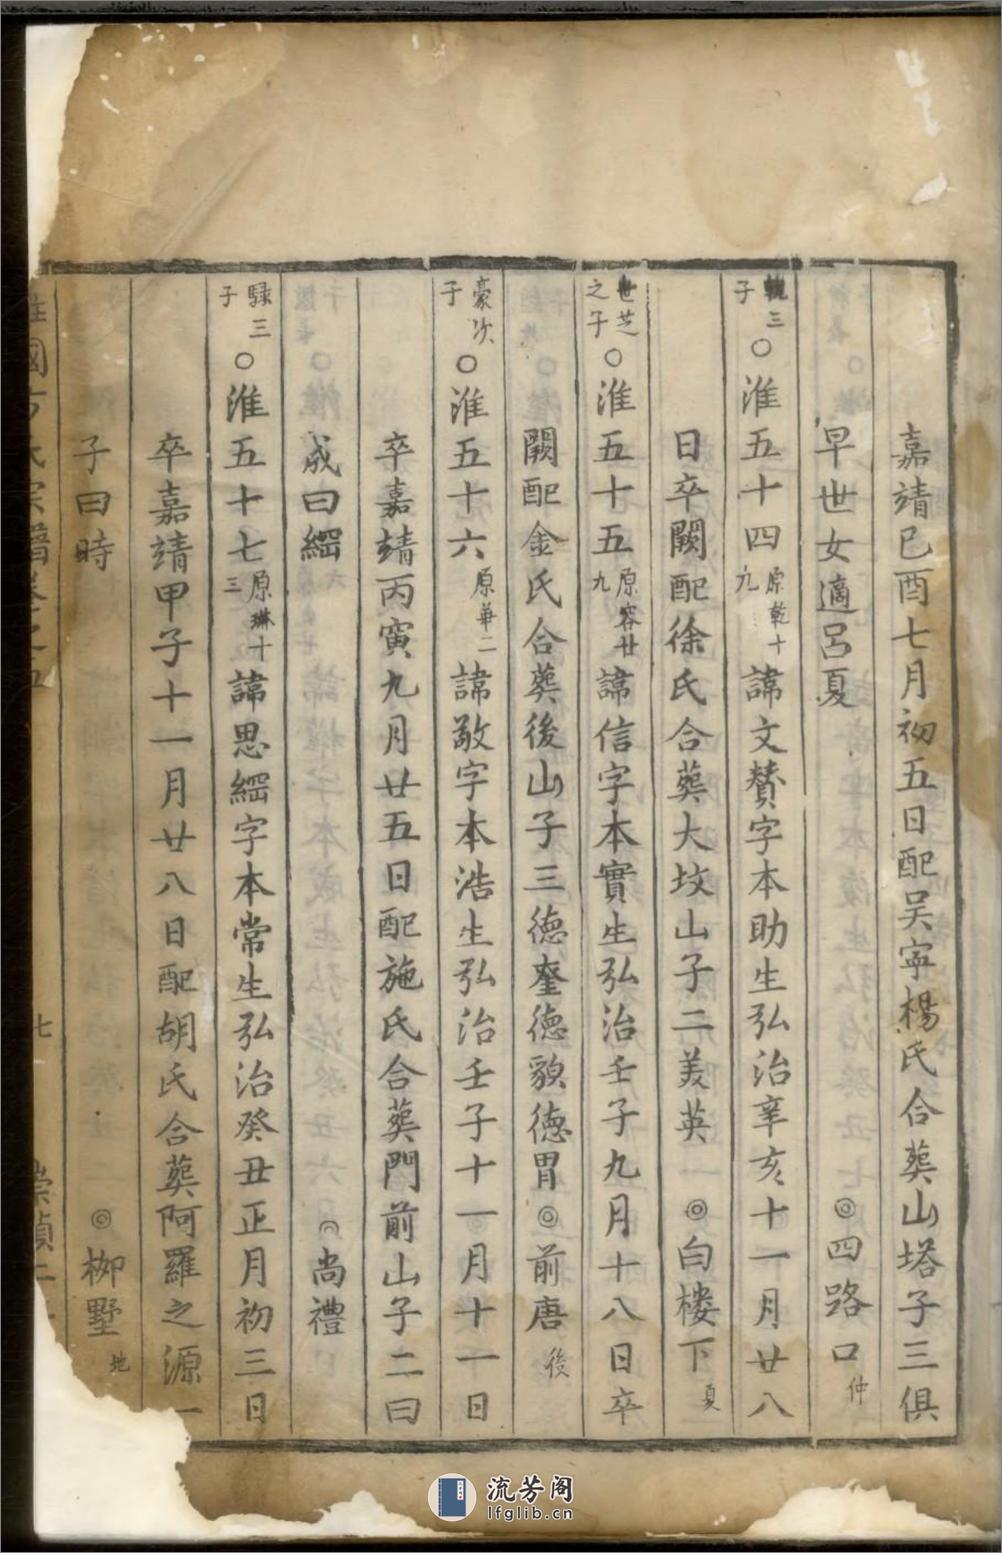 嘉靖己酉七月初五日配吴寧楊氏合葬山塔子三俱
早世女適呂夏 ◎四路口仲
三子○淮五十四原乾十九諱文賛字本助生弘治辛亥十一月廿八
日卒闕配徐氏合葬大坟山子二美英 ◎白楼下夏
世芝之子○淮五十五原容廿九諱信字本實生弘治壬子九月十八日卒
闕配金氏合葬後山子三德奎德貌德胄◎前唐後
豪次子○淮五十六原華二諱敬字本浩生弘治壬子十一月十一日
卒嘉靖丙寅九月廿五日配施氏合葬門前山子二曰
成曰綱 尚禮
騄三子○淮五十七原琳十三諱思綱字本常生弘治癸丑正月初三日
卒嘉靖甲子十一月廿八日配胡氏合葬阿羅之源一
子曰時 ◎柳墅地
國方氏宗譜卷之五 七 崇禎
流芳阁
lfglib.cn